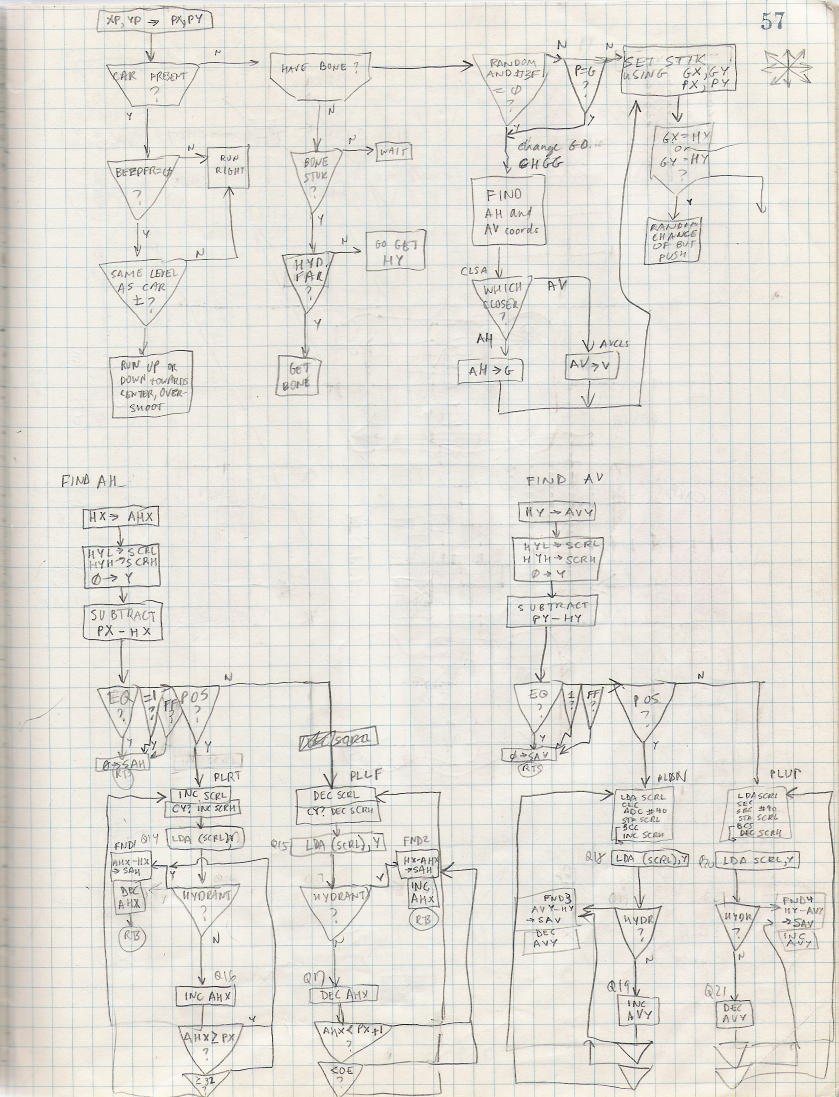 57
XP, YP → PX, PY
CAR PRESENT
?
N
Y
HAVE BONE?
N
RANDOM
AND #3F
= 0
?
N
Y
P=G
?
N
Y
SET STIK
USING GX, GY
PX, PY
BEEPER=0
?
N
Y
RUN
RIGHT
BONE
STUK
?
N
Y
WAIT
change GO.
CHGG
GX=HX
or
GY=HY
?
Y
FIND
AH and
AV coords
RANDOM
CHANGE
OF BUT
PUSH
SAME LEVEL
AS CAR
± ?
N
Y
HYD.
FAR
?
N
Y
GO GET
HY
CLSA
WHICH
CLOSER
?
AV
AH
AVCLS
RUN UP OR
DOWN TOWARDS
CENTER, OVER-
SHOOT
GET
BONE
AH → G
AV → V
FIND AH
FIND AV
HX → AHX
HY → AVY
HYL → SCRL
HYH → SCRH
0 → Y
HYL → SCRL
HYH → SCRH
0 → Y
SUBTRACT
PX - HX
SUBTRACT
PY - HY
EQ
?
=1
?
FF
?
POS
?
N
Y
Y
EQ
?
1
?
FF
?
POS
?
N
Y
Y
0 → SAH
RTS
0 → SAV
RTS
PLRT
INC SCRL
CY? INC SCRH
PLLF
DEC SCRL
CY? DEC SCRH
PLDN
LDA SCRL
CLC
ADC #40
STA SCRL
BCC
INC SCRH
PLUP
LDA SCRL
SEC
SBC #40
STA SCRL
BCS
DEC SCRH
Q14
LDA (SCRL),Y
Q15
LDA (SCRL),Y
Q18
LDA (SCRL),Y
LDA SCRL,Y
FND1
AHX-HX
→ SAH
DEC
AHX
HYDRANT
?
Y
N
HYDRANT
?
Y
N
FND2
HX-AHX
→ SAH
INC
AHX
FND3
AVY-HY
→ SAV
DEC
AVY
HYDR
?
N
HYDR
?
N
FND4
HY-AVY
→ SAV
INC
AVY
Q16
INC AHX
Q17
DEC AHX
Q19
INC
AVY
Q21
DEC
AVY
AHX≥PX
?
Y
AHX<PX+1
?
≥32
?
<0E
?